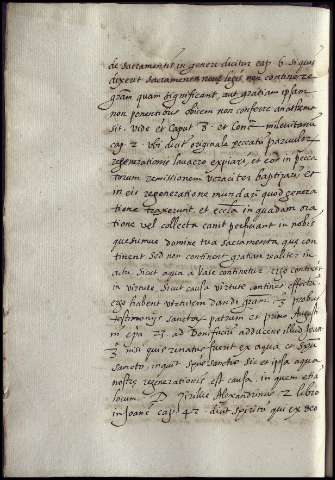 de sacramentis in genere dicitur cap 6 si quis
dixerit sacramenta novę legis non continere
gratiam quam significant, aut gratiam ipsam
non ponentibus obicem non conferre anathema
sit. vide et Caput 8 et Conc. milevitanū
cap 2 ubi dicit originale peccatū parvulorū
regenerationis lavacro expiari, et eos in pecca
torum remissionem veraciter baptizari ut
in eis regeneratione mundaři quod genera
tione traxerunt. et eccłia in quadam ora
tione vel collecta canit perficiant in nobis
quęsumus domine tua sacramenta quę con
tinent sed non continent gratiam realiter in
actu sicut aqua a vase continetur ergo continent
in virtute, sicut causa virtute continet effectū
ergo habent virtutem dandi gram. 3 probatur
testimonijs sanctorū patrum et primo August
in epła 23 ad Bonifaciū adducens illud Joan
3 nisi quis renatus fuerit ex aqua et Spū
sancto, inquit spūs sanctus sic et ipsa aqua
nostrę regenerationis est causa, in quem etiā
locum. D. Cirillus Alexandrinus 2 libro
in Joanē cap 42 dicit spiritū qui ex deo